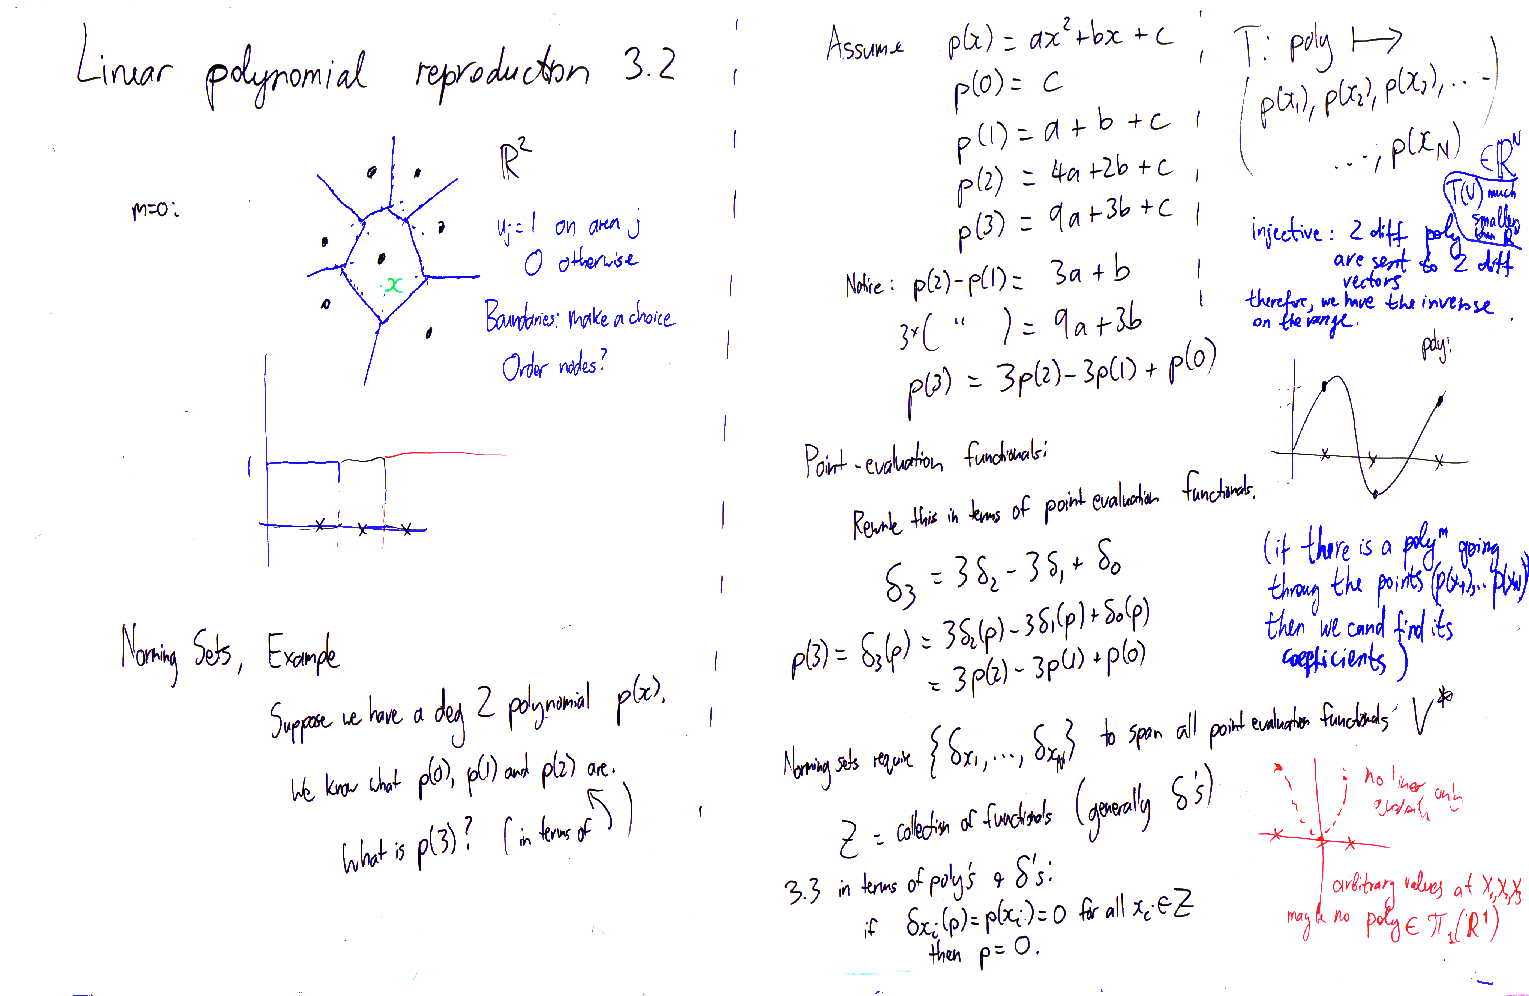 Linear polynomial reproduction 3.2
m=0:
ℝ²
uj=1 on area j
0 otherwise
x
Boundaries: make a choice
Order nodes?
1
Norming Sets, Example
Suppose we have a deg 2 polynomial p(x).
We know what p(0), p(1) and p(2) are.
What is p(3)? (in terms of )
Assume p(x) = ax²+bx+c
p(0) = c
p(1) = a+b+c
p(2) = 4a+2b+c
p(3) = 9a+3b+c
Notice: p(2)-p(1) = 3a+b
3×( " ) = 9a+3b
p(3) = 3p(2)-3p(1)+p(0)
Point-evaluation functionals:
Rewrite this in terms of point evaluation functionals.
δ₃ = 3δ₂ - 3δ₁ + δ₀
p(3) = δ₃(p) = 3δ₂(p)-3δ₁(p)+δ₀(p)
= 3p(2)-3p(1)+p(0)
Norming sets require {δx₁,..., δx_N} to span all point evaluation functionals V*
Z = collection of functionals (generally δ's)
3.3 in terms of poly's & δ's:
if δxᵢ(p)=p(xᵢ)=0 for all xᵢ∈Z
then p=0.
T: poly ↦
(p(x₁), p(x₂), p(x₃), ...
..., p(x_N)) ∈ℝᴺ
T(V) much
smaller
than ℝ
injective: 2 diff poly
are sent to 2 diff
vectors
therefore, we have the inverse
on the range.
poly:
(if there is a polyᵐ going
throug the points (p(x₁),.. p(x_N))
then we cand find its
coefficients)
no linear only
arbitrary values at x₁,x₂,x₃
maybe no poly∈ π₁(ℝ¹)